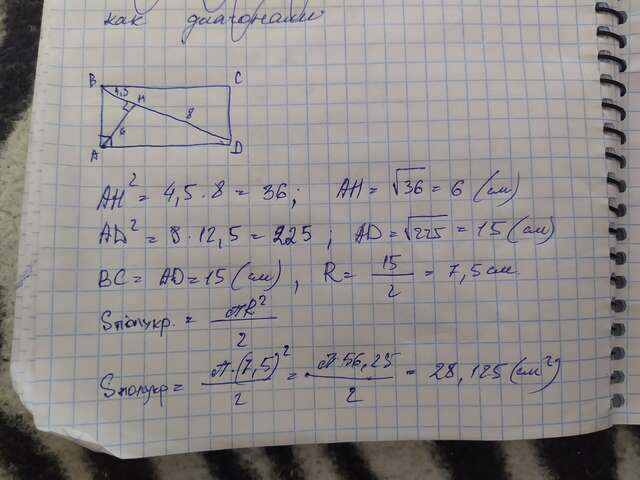 как диагонали
B C
4,5 H
8
6
A D
AH² = 4,5 · 8 = 36; AH = √36 = 6 (см)
AD² = 8 · 12,5 = 225; AD = √225 = 15 (см)
BC = AD = 15 (см), R = 15/2 = 7,5 см
Sполукр. = πR²/2
Sполукр = π·(7,5)²/2 = π·56,25/2 = 28,125 (см²)